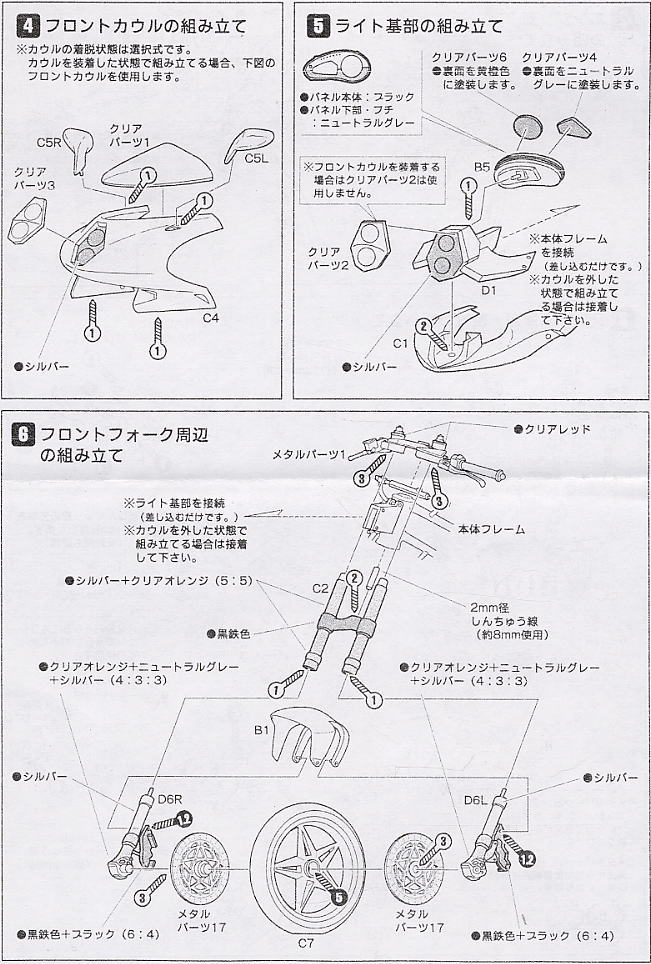 4 フロントカウルの組み立て
※カウルの着脱状態は選択式です。
カウルを装着した状態で組み立てる場合、下図の
フロントカウルを使用します。
C5R
クリア
パーツ1
C5L
クリア
パーツ3
1
1
1
1
C4
●シルバー
5 ライト基部の組み立て
●パネル本体：ブラック
●パネル下部・フチ
：ニュートラルグレー
クリアパーツ6
●裏面を黄橙色
に塗装します。
クリアパーツ4
●裏面をニュートラル
グレーに塗装します。
B5
※フロントカウルを装着する
場合はクリアパーツ2は使
用しません。
1
クリア
パーツ2
D1
※本体フレーム
を接続
（差し込むだけです。）
※カウルを外した
状態で組み立て
る場合は接着し
て下さい。
2
C1
●シルバー
6 フロントフォーク周辺
の組み立て
●クリアレッド
メタルパーツ1
3
3
※ライト基部を接続
（差し込むだけです。）
※カウルを外した状態で
組み立てる場合は接着
して下さい。
本体フレーム
●シルバー＋クリアオレンジ（5：5）
C2
2
2mm径
しんちゅう線
（約8mm使用）
●黒鉄色
●クリアオレンジ＋ニュートラルグレー
＋シルバー（4：3：3）
●クリアオレンジ＋ニュートラルグレー
＋シルバー（4：3：3）
1
1
B1
●シルバー
●シルバー
D6R
D6L
12
12
3
3
5
メタル
パーツ17
メタル
パーツ17
●黒鉄色＋ブラック（6：4）
●黒鉄色＋ブラック（6：4）
C7